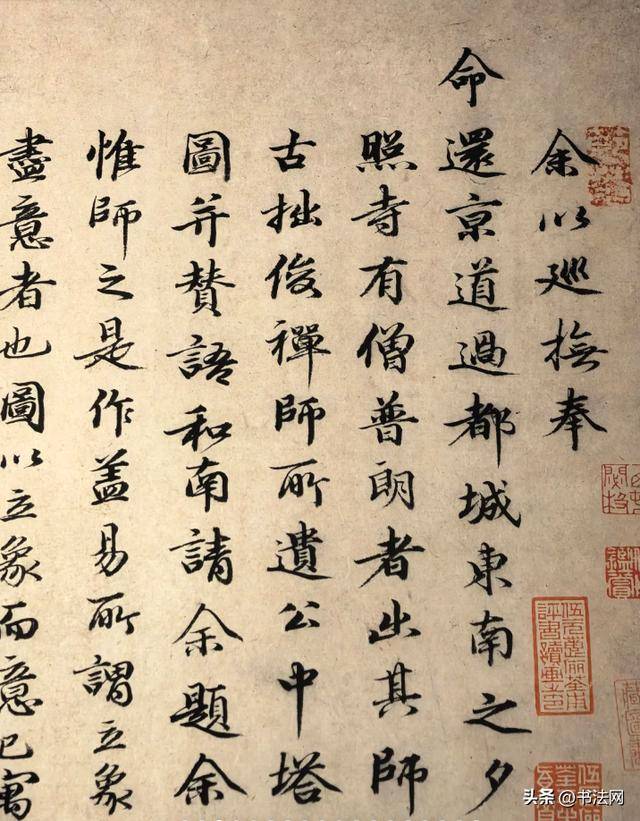 余以巡撫奉
命還京道過都城東南之夕
照寺有僧普朗者出其師
古拙俊禪師所遺公中塔
圖并贊語和南請余題余
惟師之是作盖易所謂立象
盡意者也圖以立象而意已寓
头条 @书法网